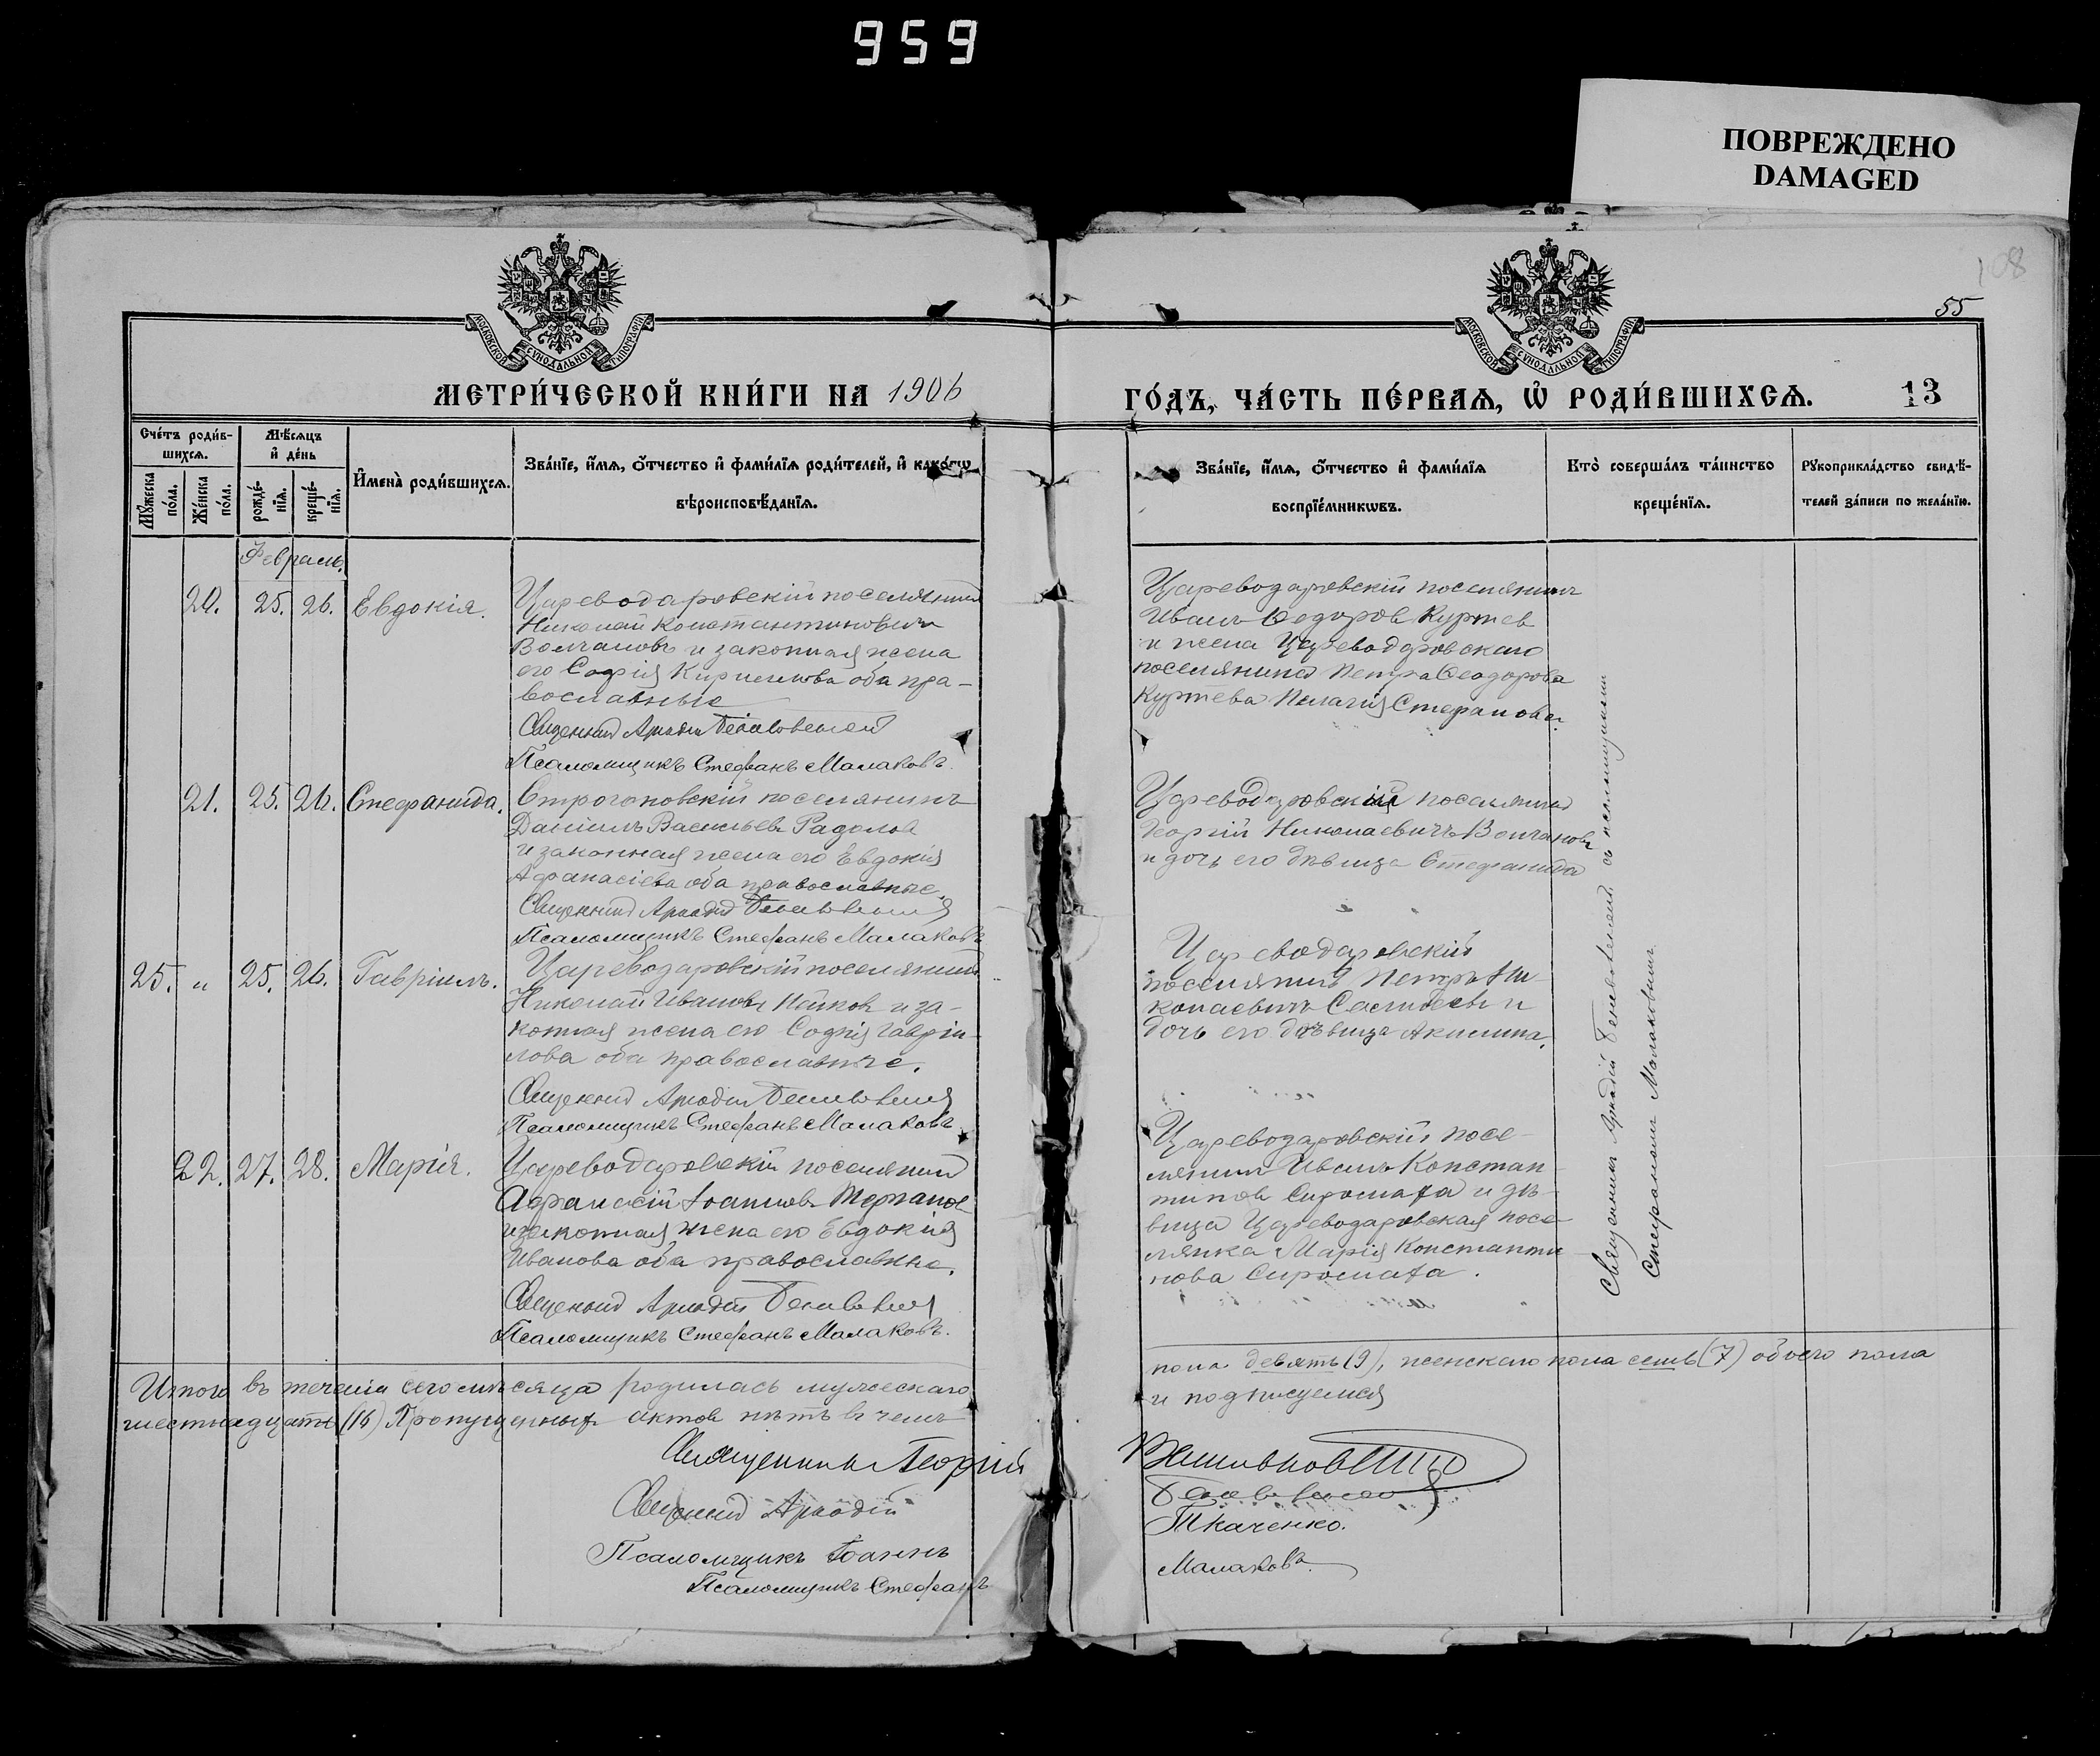 959
ПОВРЕЖДЕНО
DAMAGED
108
55
МОСКОВСКОЙ СѴНОДАЛЬНОЙ ТИПОГРАФІИ
МОСКОВСКОЙ СѴНОДАЛЬНОЙ ТИПОГРАФІИ
МЕТРИ́ЧЕСКОЙ КНИ́ГИ НА 1906
ГО́ДЪ, ЧА́СТЬ ПЕ́РВАѦ, Ѡ҆ РОДИ́ВШИХСѦ. 13
Сче́тъ роди́в-
шихсѧ.
Мꙋ́жеска по́ла.
Же́нска по́ла.
Мѣ́сѧцъ
и҆ де́нь
рожде́-
нїѧ.
креще́-
нїѧ.
И҆мена̀ роди́вшихсѧ.
Зва́нїе, и҆́мѧ, ѻ҆́тчество и҆ фами́лїѧ роди́телей, и҆ како́гѡ
вѣроисповѣ́данїѧ.
Зва́нїе, и҆́мѧ, ѻ҆́тчество и҆ фами́лїѧ
воспрїе́мникѡвъ.
Кто̀ соверша́лъ та́инство
креще́нїѧ.
Рꙋкоприкла́дство свидѣ́-
телей за́писи по жела́нїю.
Февраль.
20. 25. 26. Евдокія.
Цареводаровскій поселянинъ
Николай Константиновичъ
Волчановъ и законная жена
его Софія Кириллова оба пра-
вославные
Священникъ Аркадій
Псаломщикъ Стефанъ Малаковъ.
Цареводаровскій поселянинъ
Иванъ Ѳеодоров Куртев
и жена Цареводаровскаго
поселянина Петра Ѳеодорова
Куртева Пелагія Стефанова.
21. 25. 26. Стефанида.
Строгоновскій поселянинъ
Даніилъ Васильевъ Радолов
и законная жена его Евдокія
Афанасіева оба православные.
Священникъ Аркадій
Псаломщикъ Стефанъ Малаковъ
Цареводаровскій поселянинъ
Георгій Николаевичъ Волчановъ
и дочь его дѣвица Стефанида
25. " 25. 26. Гавріилъ.
Цареводаровскій поселянинъ
Николай Ивановъ Пейков и за-
конная жена его Софія Гаврі-
лова оба православные.
Священникъ Аркадій
Псаломщикъ Стефанъ Малаковъ
Цареводаровскій
поселянинъ Петръ Ни-
колаевичъ и
дочь его дѣвица Акилина.
22. 27. 28. Марія.
Цареводаровскій поселянинъ
Афанасій Іоаннов Терзанов
и законная жена его Евдокія
Иванова оба православные.
Священникъ Аркадій
Псаломщикъ Стефанъ Малаковъ.
Цареводаровскій посе-
лянинъ Иванъ Констан-
тинов Сиромаха и дѣ-
вица Цареводаровская посе-
лянка Марія Константи-
нова Сиромаха.
Священникъ Аркадій съ псаломщикомъ
Стефаномъ Малаковымъ
Итого въ теченіи сего мѣсяца родилась мужескаго
пола девять (9), женскаго пола семь (7) обоего пола
шестнадцать (16) Пропущенныхъ актов нѣтъ в чемъ
и подписуемся
Священникъ Георгій
Священникъ Аркадій
Псаломщикъ Іоаннъ Ткаченко.
Псаломщикъ Стефанъ Малаковъ.